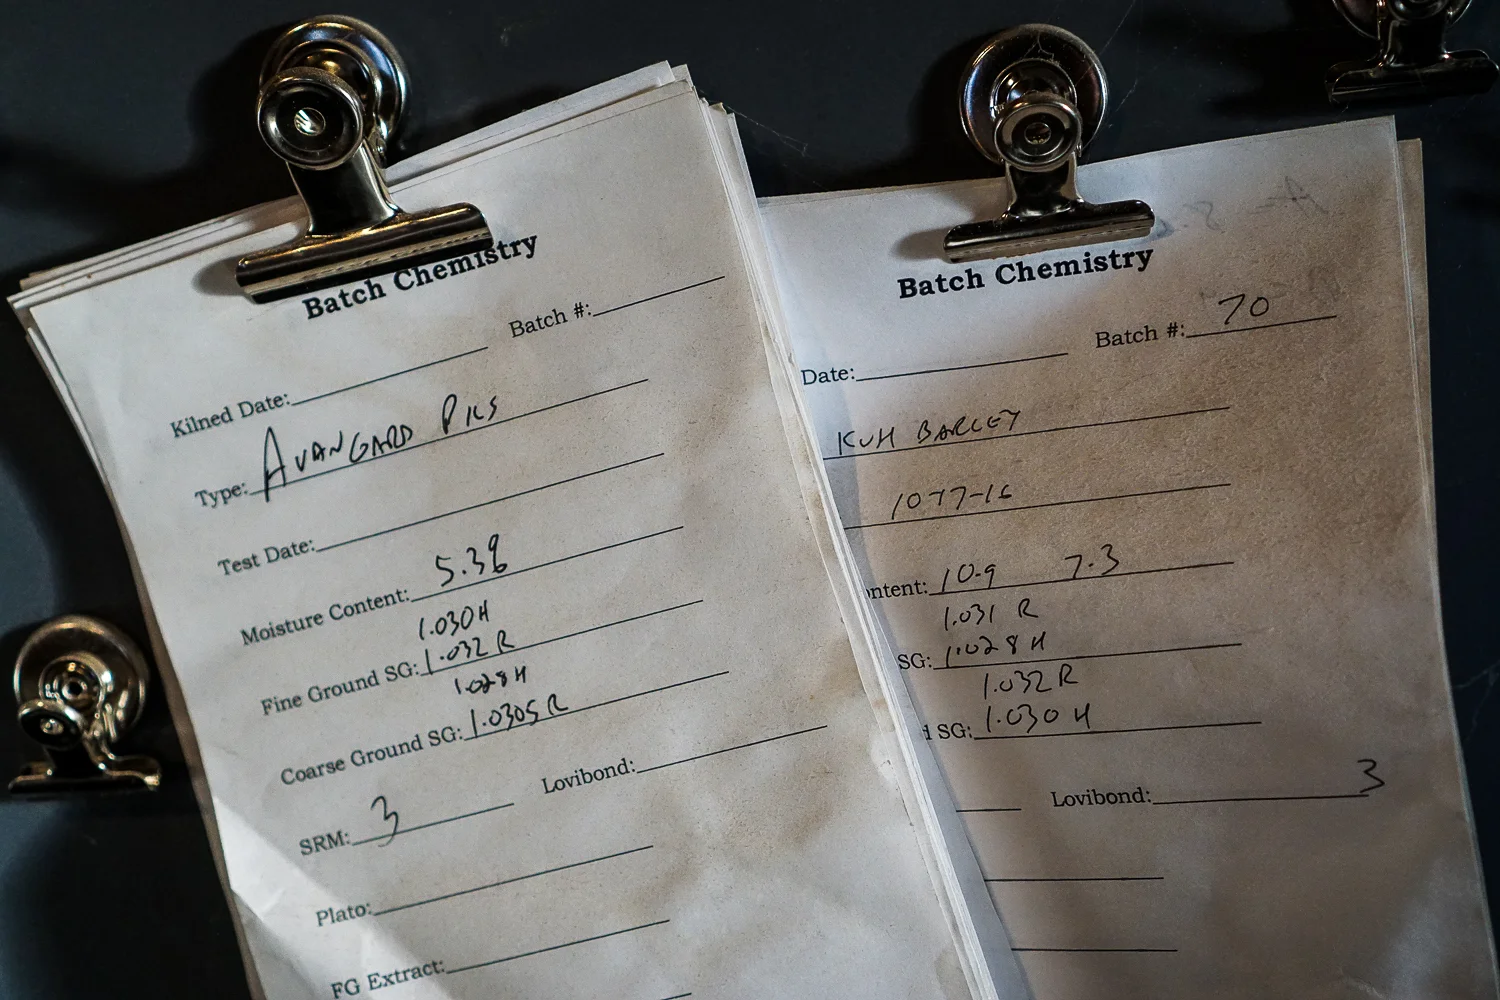 Batch Chemistry
Batch #:
Kilned Date:
Type: AVANGARD PILS
Test Date:
Moisture Content: 5.38
1.030 H
Fine Ground SG: 1.032 R
1.028 H
Coarse Ground SG: 1.0305 R
SRM: 3 Lovibond:
Plato:
FG Extract:
Batch Chemistry
Batch #: 70
Date:
BARLEY
1077-16
ntent: 10.9 7.3
1.031 R
SG: 1.028 H
1.032 R
d SG: 1.030 H
Lovibond: 3